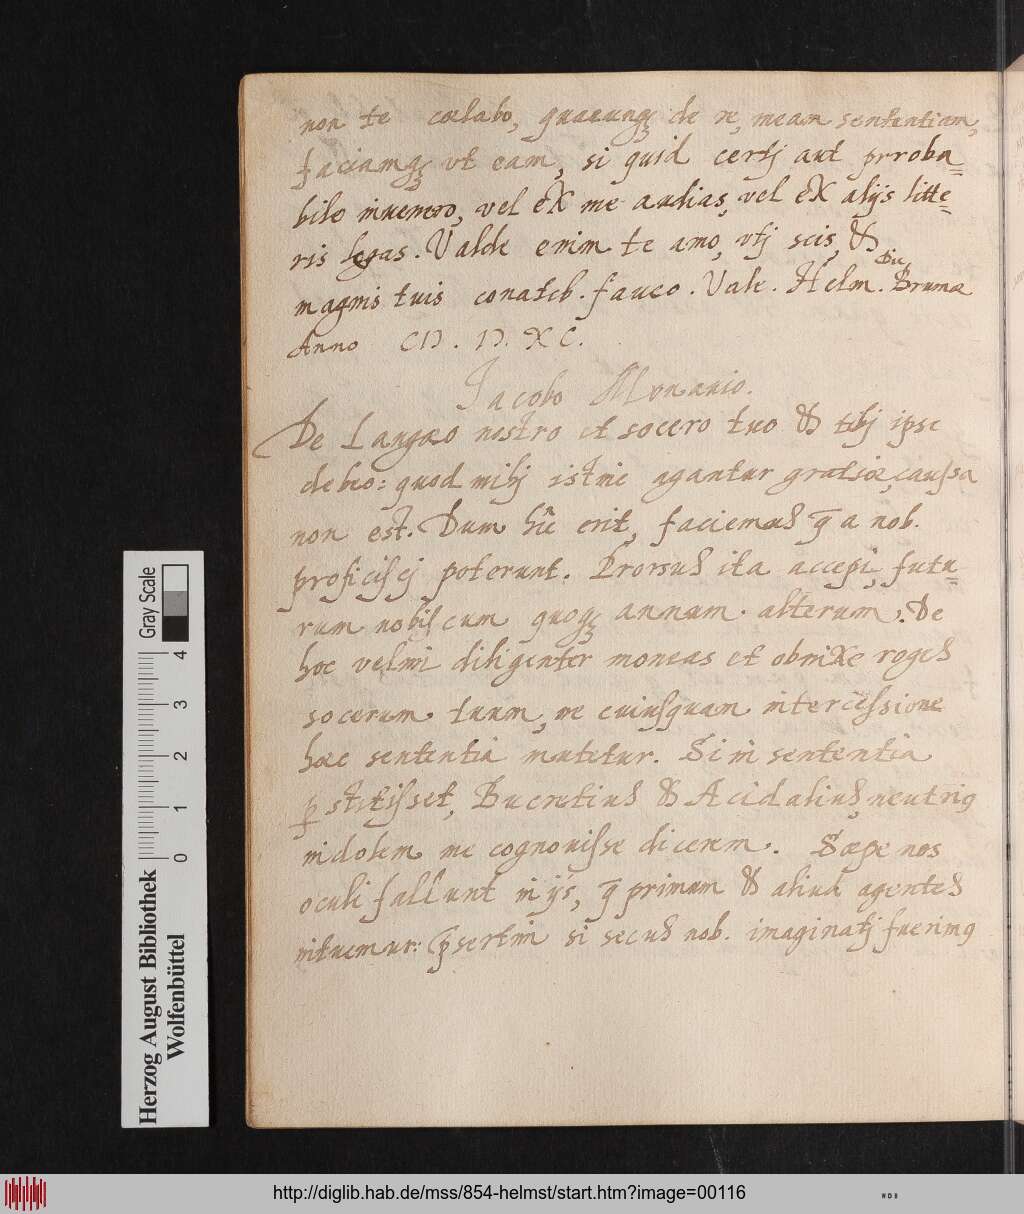 non te cœlabo, quacunqꝫ de re, meam sententiam,
faciamqꝫ vt eam, si quid certj aut prroba=
bile inuenero, vel eX me audias, vel eX alijs litte=
ris legas. Valde enim te amo, vtj scis, &
magnis tuis conateb. faueo. Vale. Helm. Die Brumæ
Anno CIƆ. IƆ. XC.
Jacobo Monauio.
De Langæo nostro et socero tuo & tibj ipse
debeo: quod mihj istinc agantur gratiæ, caussa
non est. Dum hîc erit, faciemus q̄ a nob.
proficiscj poterunt. Prorsus ita accepi, futu=
rum nobiscum quoqꝫ annum alterum. De
hoc velim diligenter moneas et obniXe roges
socerum tuum, ne cuiusquam intercessione
hæc sententia mutetur. Si in sententia
ꝑstitisset, Bucretius & Acidalius, neutrius
indolem me cognouisse dicerem. Sæpe nos
oculi fallunt in ijs, q̄ primum & aliud agentes
intuemur: p̄sertim si secus nob. imaginatj fuerimus
Gray Scale
4
3
2
1
0
Herzog August Bibliothek
Wolfenbüttel
http://diglib.hab.de/mss/854-helmst/start.htm?image=00116